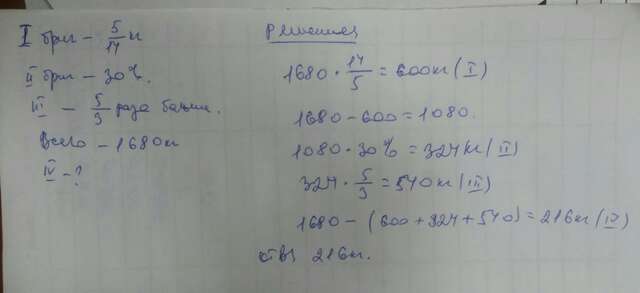 I бриг - 5/14 кг
II бриг - 30%.
III - 5/3 раза больше.
Всего - 1680 кг
IV - ?
Решение
1680 · 14/5 = 600 кг (I)
1680 - 600 = 1080.
1080 · 30% = 324 кг (II)
324 · 5/3 = 540 кг (III)
1680 - (600 + 324 + 540) = 216 кг (IV)
отв: 216 кг.